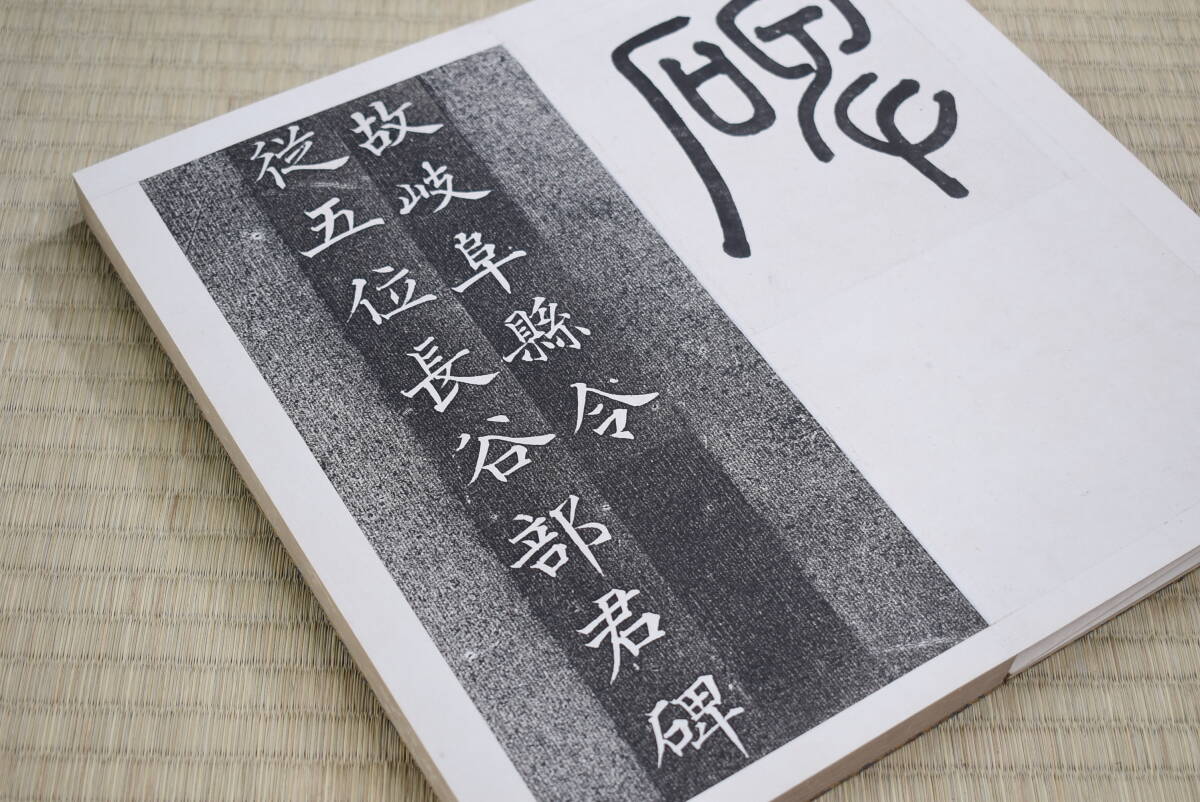 碑
故岐阜縣令
從五位長谷部君碑